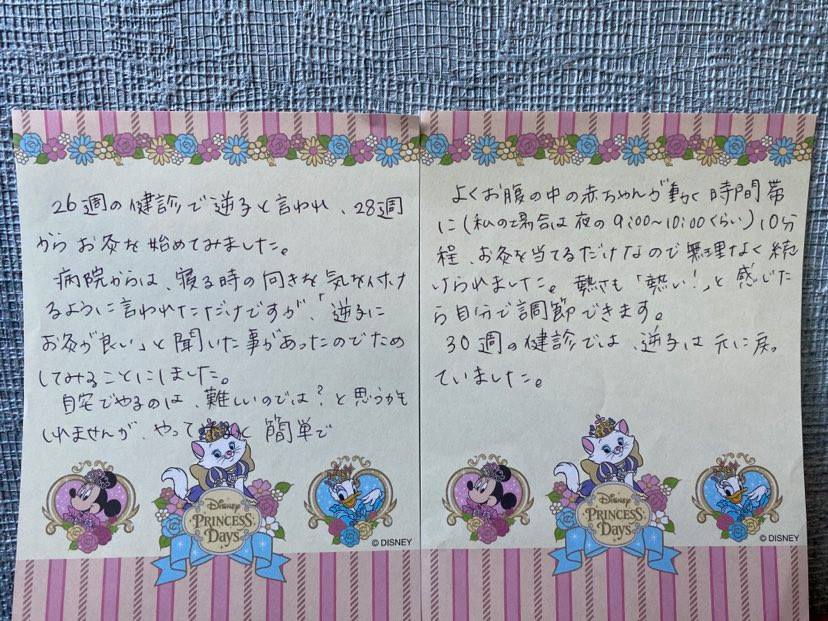 26週の健診で逆子と言われ、28週
からお灸を始めてみました。
病院からは、寝る時の向きを気を付け
るように言われただけですが、「逆子に
お灸が良い」と聞いた事があったのでため
してみることにしました。
自宅でやるのは、難しいのでは?と思うかも
しれませんが、やって と簡単で
Disney
PRINCESS
Days
© DISNEY
よくお腹の中の赤ちゃんが動く時間帯
に(私の場合は夜の9:00~10:00くらい)10分
程、お灸を当てるだけなので無理なく続
けられました。熱さも「熱い!」と感じた
ら自分で調節できます。
30週の健診では、逆子は元に戻っ
ていました。
Disney
PRINCESS
Days
© DISNEY